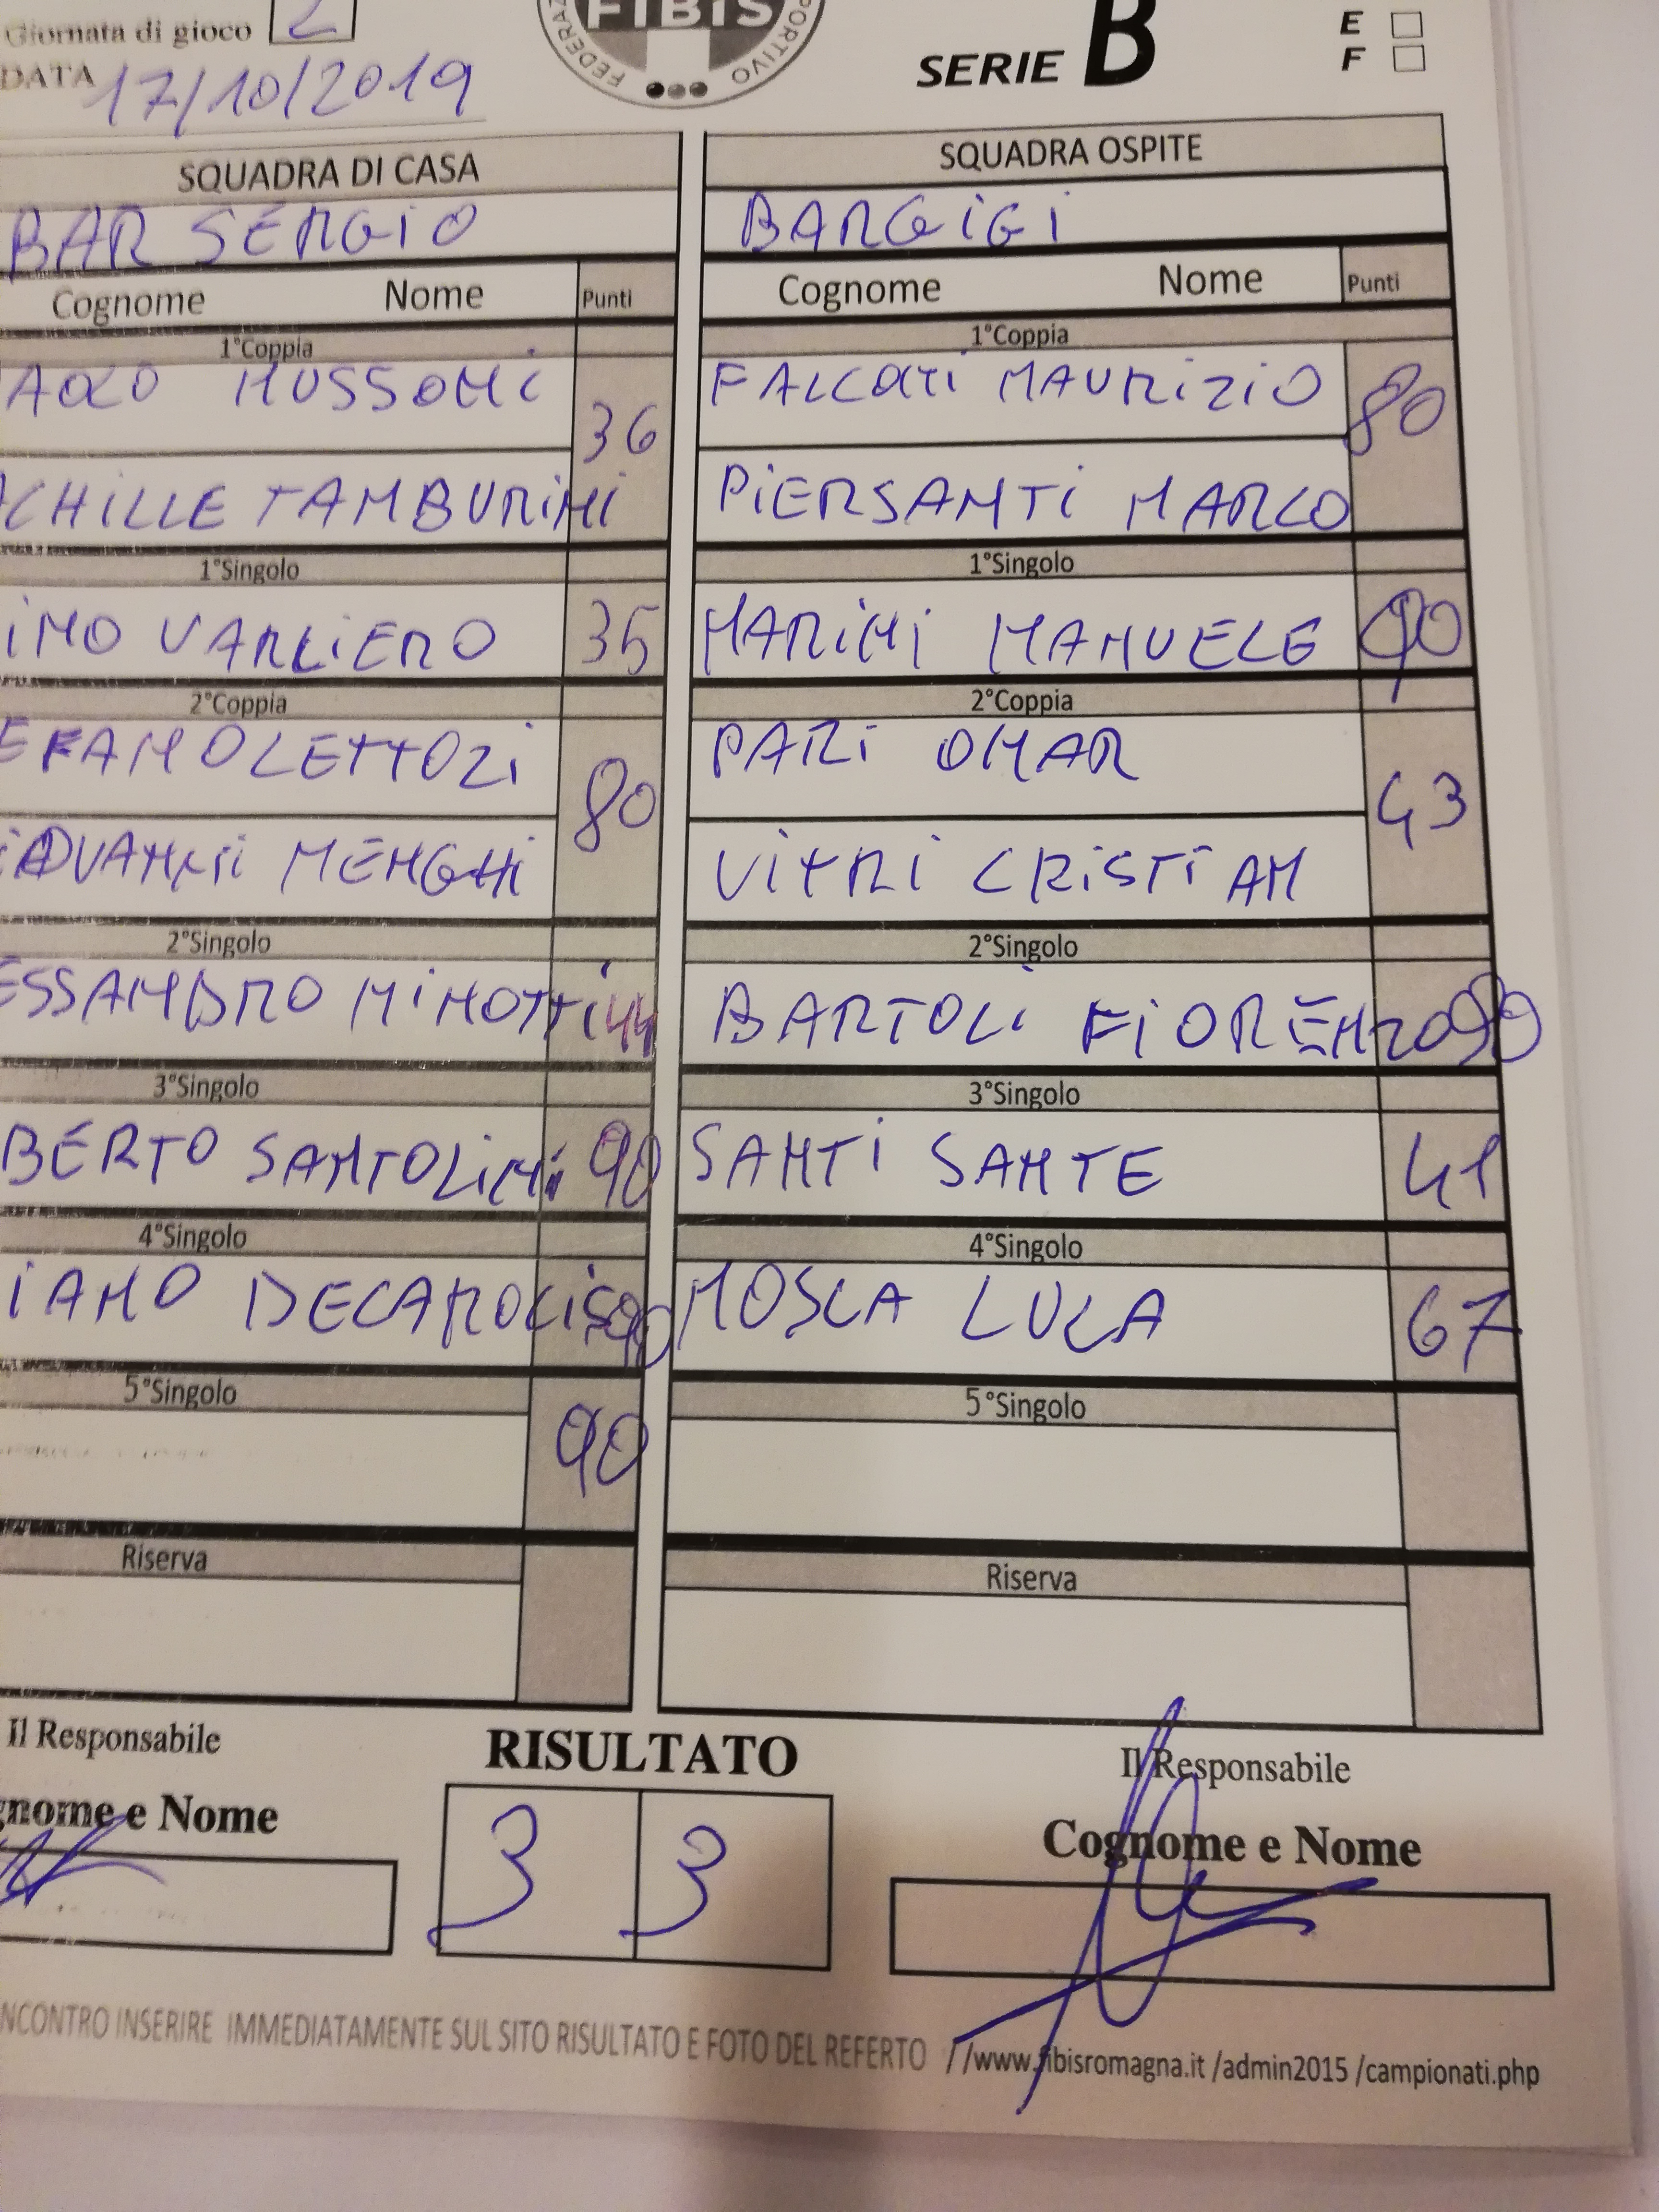 Giornata di gioco 2
DATA 17/10/2019
FIBiS
SERIE B
E
F
SQUADRA DI CASA
BAR SERGIO
Cognome Nome Punti
1°Coppia
AOLO MUSSONI 36
ACHILLE TAMBURINI
1°Singolo
IMO VARLIERO 35
2°Coppia
EFANO LETTOZI 80
MENGHI
2°Singolo
ESSANDRO MINOTTI 44
3°Singolo
BERTO SANTOLINI 90
4°Singolo
IANO DECAROLIS 90
5°Singolo
90
Riserva
SQUADRA OSPITE
BARGIGI
Cognome Nome Punti
1°Coppia
FALCONI MAURIZIO 80
PIERSANTI MARCO
1°Singolo
MARINI MANUELE 90
2°Coppia
PARI OMAR 43
VITRI CRISTIAN
2°Singolo
BARTOLI FIORENZO 90
3°Singolo
SANTI SANTE 41
4°Singolo
MOSCA LUCA 67
5°Singolo
Riserva
Il Responsabile
gnome e Nome
RISULTATO
3 3
Il Responsabile
Cognome e Nome
NCONTRO INSERIRE IMMEDIATAMENTE SUL SITO RISULTATO E FOTO DEL REFERTO //www.fibisromagna.it /admin2015 /campionati.php